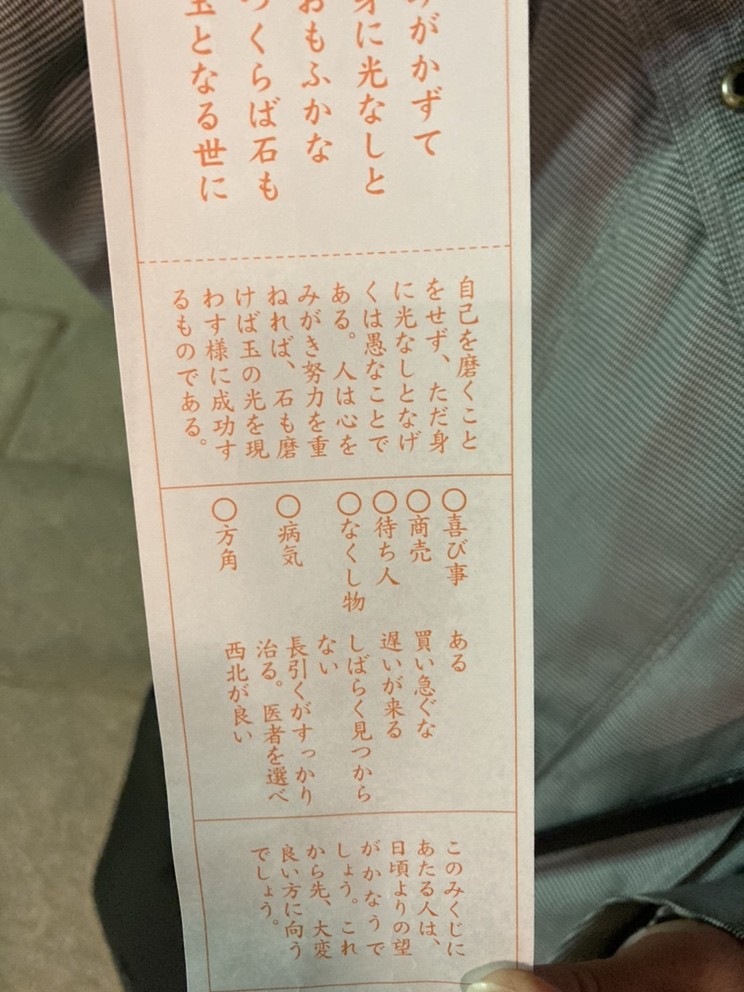 みがかずて
身に光なしと
おもふかな
つくらば石も
玉となる世に
自己を磨くこと
をせず、ただ身
に光なしとなげ
くは愚なことで
ある。人は心を
みがき努力を重
ねれば、石も磨
けば玉の光を現
わす様に成功す
るものである。
〇喜び事 ある
〇商売 買い急ぐな
〇待ち人 遅いが来る
〇なくし物 しばらく見つから
ない
〇病気 長引くがすっかり
治る。医者を選べ
〇方角 西北が良い
このみくじに
あたる人は、
日頃よりの望
がかなうで
しょう。これ
から先、大変
良い方に向う
でしょう。